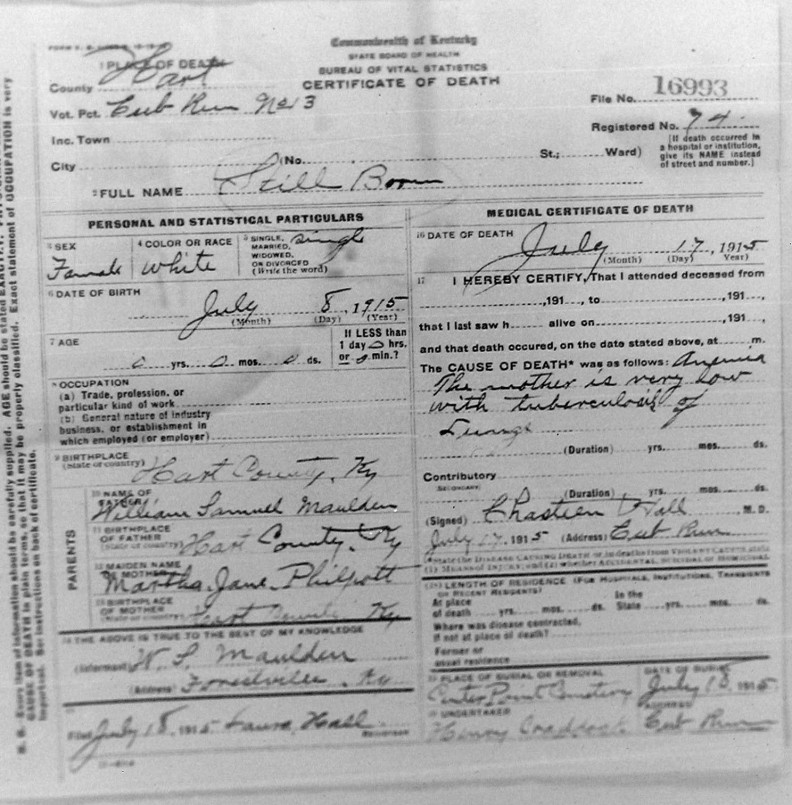 Commonwealth of Kentucky
STATE BOARD OF HEALTH
BUREAU OF VITAL STATISTICS
CERTIFICATE OF DEATH
1 PLACE OF DEATH
County Hart
Vot. Pct. Cub Run No 13
Inc. Town
City (No. St.; Ward)
File No. 16993
Registered No. 74
[If death occurred in
a hospital or institution,
give its NAME instead
of street and number.]
2 FULL NAME Still Born
PERSONAL AND STATISTICAL PARTICULARS
3 SEX
Female
4 COLOR OR RACE
White
5 SINGLE, MARRIED, WIDOWED, OR DIVORCED (Write the word) single
6 DATE OF BIRTH
July 8, 1915
(Month) (Day) (Year)
7 AGE
0 yrs. 0 mos. 0 ds.
If LESS than
1 day 0 hrs.
or 0 min.?
8 OCCUPATION
(a) Trade, profession, or
particular kind of work
(b) General nature of industry
business, or establishment in
which employed (or employer)
9 BIRTHPLACE
(State or country) Hart County, Ky
PARENTS
10 NAME OF FATHER
William Samuel Maulden
11 BIRTHPLACE OF FATHER
(State or country) Hart County, Ky
12 MAIDEN NAME OF MOTHER
Martha Jane Philpott
13 BIRTHPLACE OF MOTHER
(State or country) Hart County Ky
14 THE ABOVE IS TRUE TO THE BEST OF MY KNOWLEDGE
(Informant) W. S. Maulden
(Address) Forestville, Ky
15
Filed July 18 1915 Laura Hall
REGISTRAR
MEDICAL CERTIFICATE OF DEATH
16 DATE OF DEATH
July 17, 1915
(Month) (Day) Year)
17 I HEREBY CERTIFY, That I attended deceased from
,191 , to ,191 ,
that I last saw h alive on ,191 ,
and that death occured, on the date stated above, at m.
The CAUSE OF DEATH* was as follows:
The mother is very low
with tuberculosis of
Lungs
(Duration) yrs. mos. ds.
Contributory
SECONDARY
(Duration) yrs. mos. ds.
(Signed) Chasteen Wall M. D.
July 17, 1915 (Address) Cub Run
*State the DISEASE CAUSING DEATH or in deaths from VIOLENT CAUSES state
(1) MEANS OF INJURY; and (2) whether ACCIDENTAL, SUICIDAL or HOMICIDAL.
LENGTH OF RESIDENCE (FOR HOSPITALS, INSTITUTIONS, TRANSIENTS
OR RECENT RESIDENTS)
At place of death yrs. mos. ds. In the State yrs. mos. ds.
Where was disease contracted,
if not at place of death?
Former or
usual residence
PLACE OF BURIAL OR REMOVAL
Center Point Cemetery
DATE OF BURIAL
July 18, 1915
UNDERTAKER
Henry Craddock
ADDRESS
Cub Run
N. B. Every item of information should be carefully supplied. AGE should be stated
CAUSE OF DEATH in plain terms, so that it may be properly classified. Exact statement of OCCUPATION is very
important. See instructions on back of certificate.